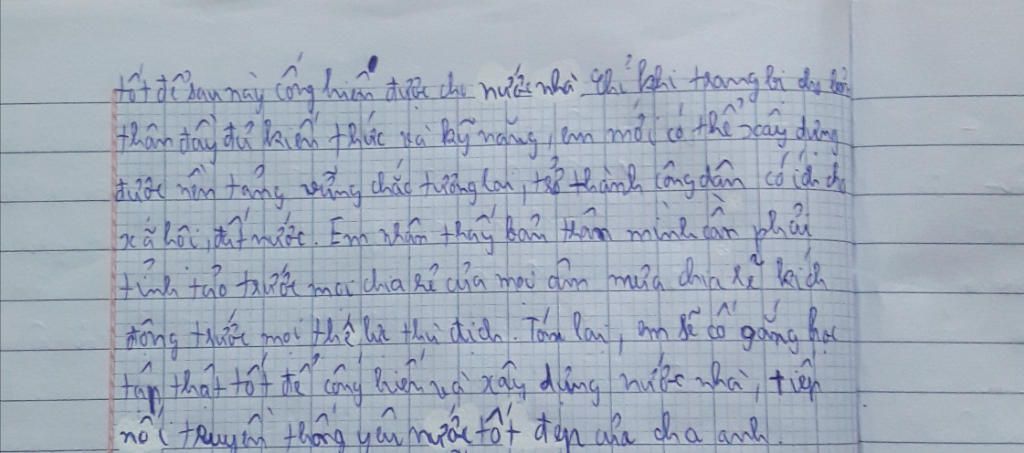 tốt để sau này cống hiến được cho nước nhà. Chỉ khi trang bị cho bản
thân đầy đủ kiến thức và kỹ năng, em mới có thể xây dựng
được nền tảng vững chắc tương lai, trở thành công dân có ích cho
xã hội, đất nước. Em nhận thấy bản thân mình cần phải
tỉnh táo trước mọi chia rẽ của mọi âm mưu chia rẽ kích
động trước mọi thế lực thù địch. Tóm lại, em sẽ cố gắng học
tập thật tốt để cống hiến và xây dựng nước nhà, tiếp
nối truyền thống yêu nước tốt đẹp của cha anh.